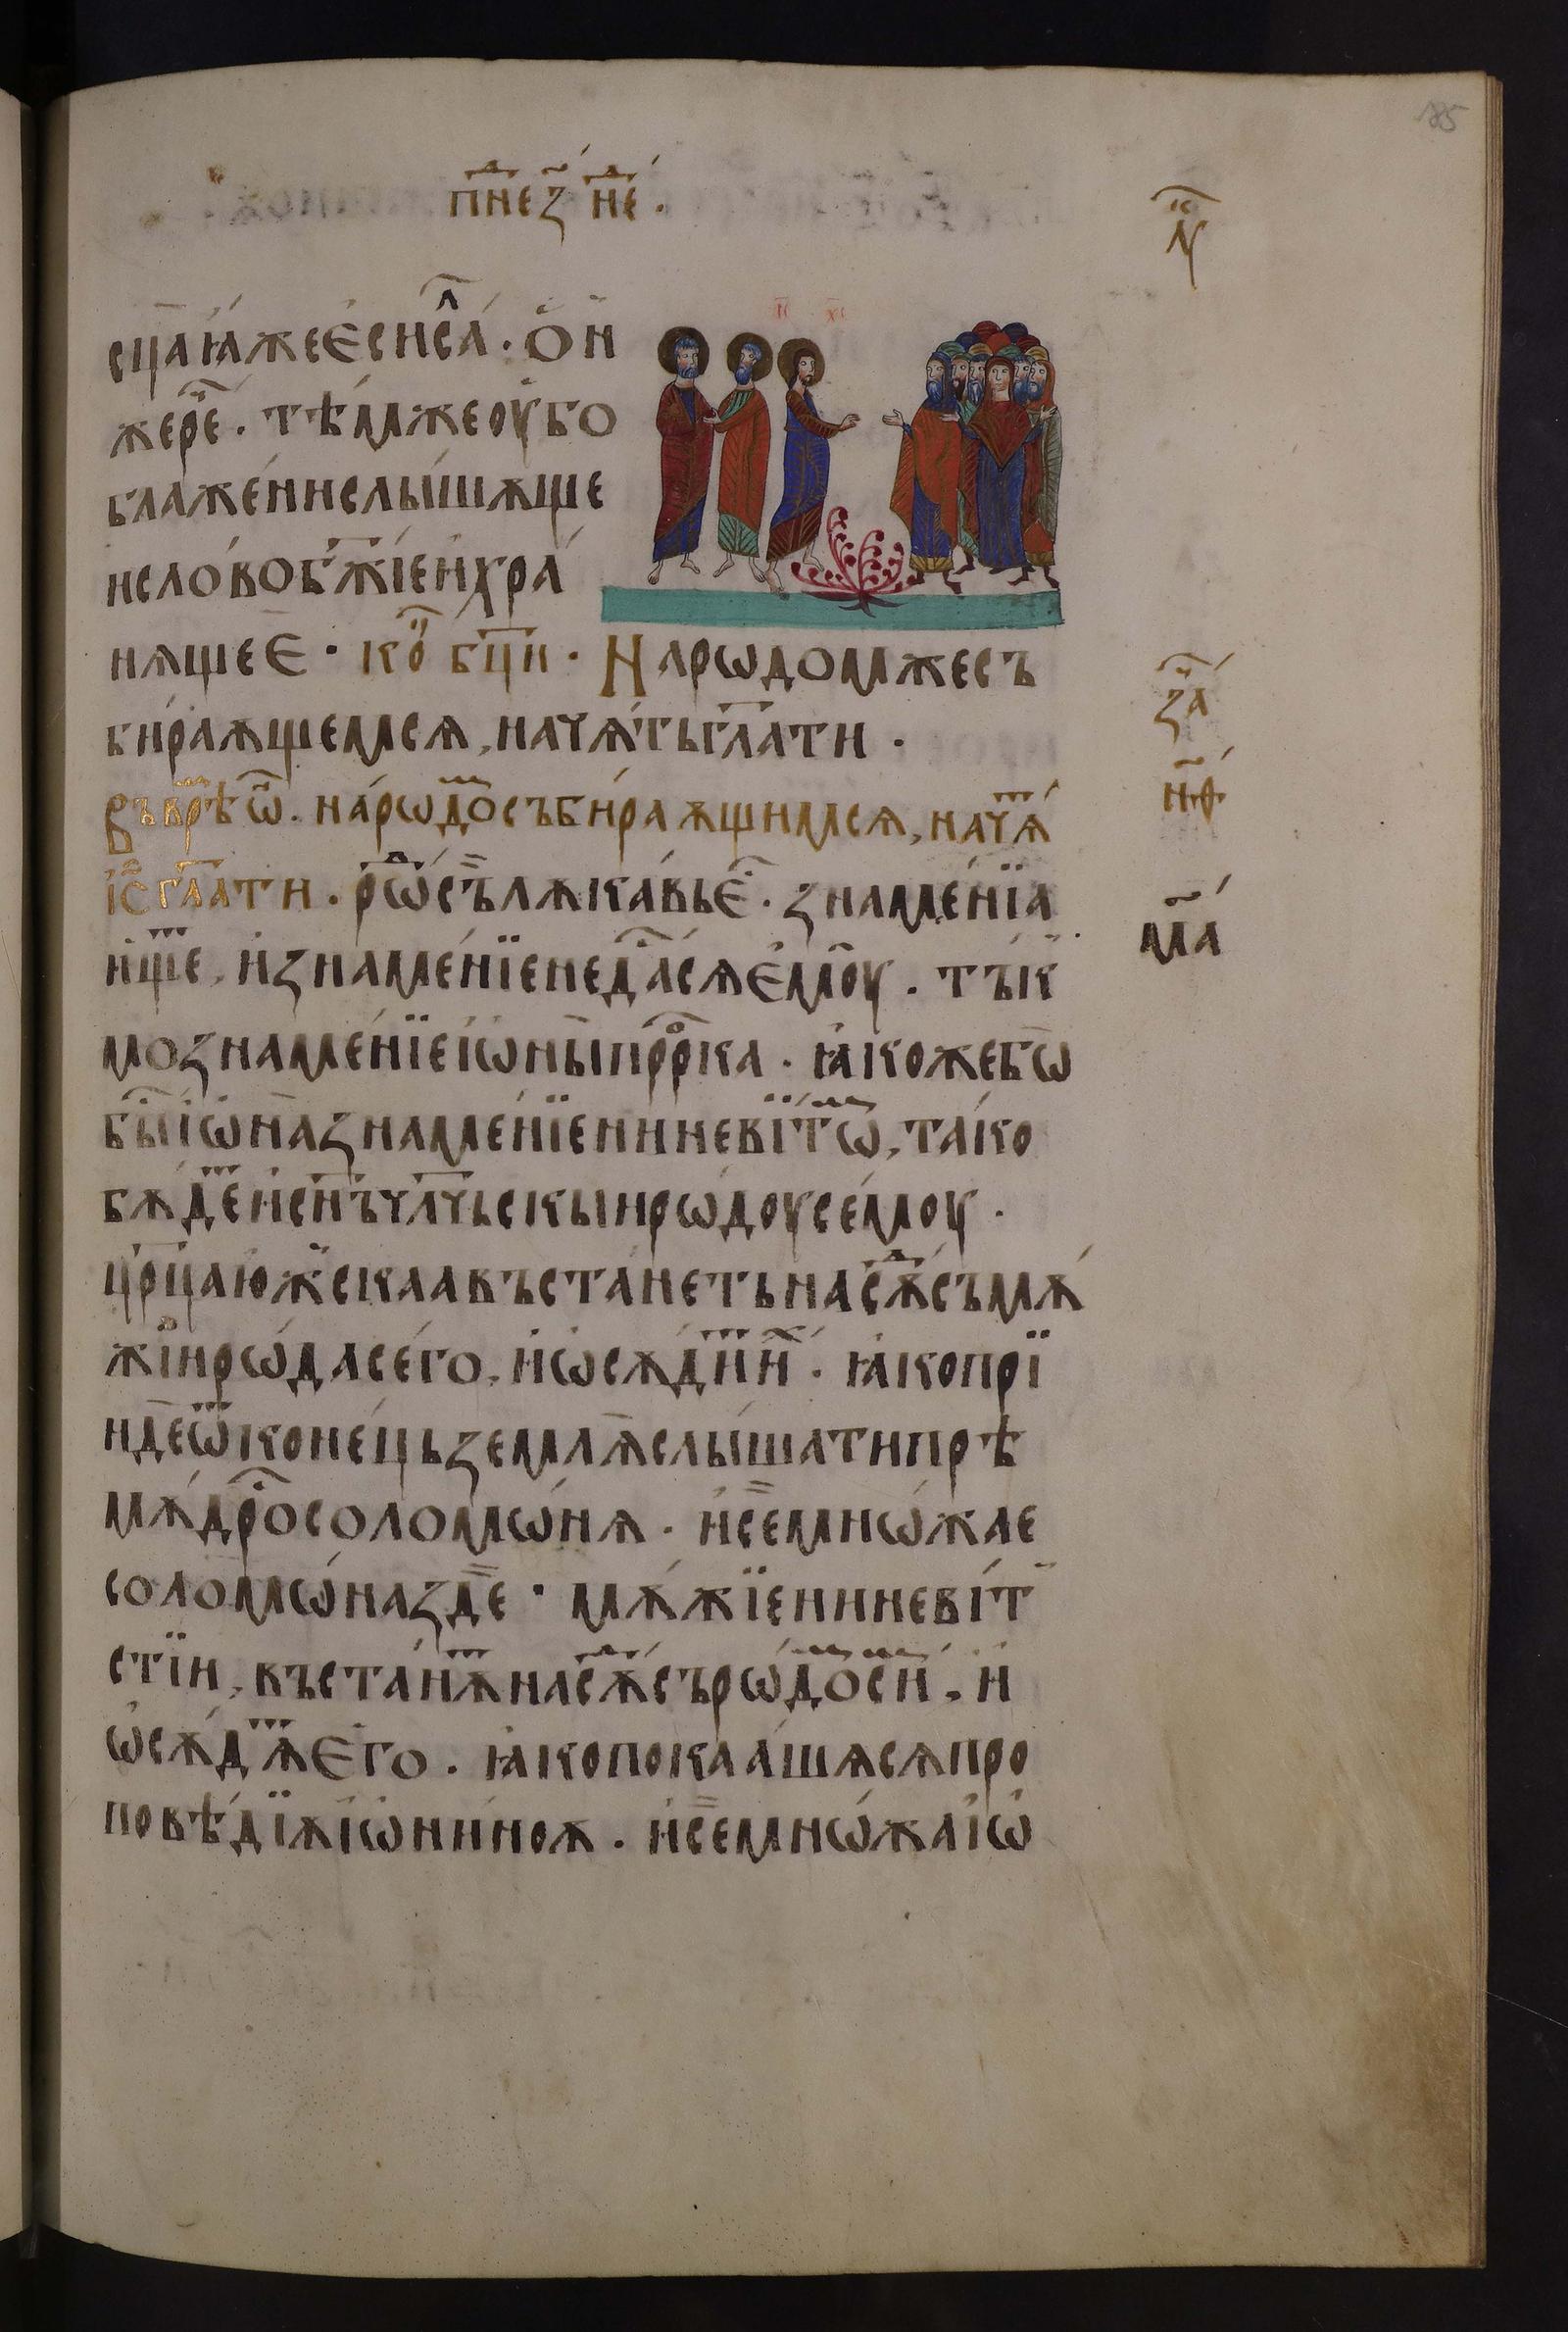 185
пн҃е з҃ не҃.
н҃
і҃с х҃с
сц҃а ꙗ҆́же є҆си сса́л. ѻ҆н
же ре҃. тѣ́мже оу҆бо
блаже́ни слы́шѫще
и сло́во бж҃їе и҆ хра
нѧще є. ко҃ бц҃и. Нарѡдом же съ
би́раѫщемсѧ, начѧ́ть гл҃ати.
за҃
Въ врѣ҃ ѡ҆҃. на́рѡдо съби́раѫщимсѧ, начѧ́
н҃ѳ
і҆с҃ гл҃ати. рѡ́д съ лѫка́вь є҆. знаме́нїа
м҃а
и҆ще, и҆ знаме́нїе не да́сѧ є҆моу. тъ́к
мо знаме́нїе і҆ѡны прⷪ҇рка. ꙗ҆коже бѡ
бы і҆ѡ́на знаме́нїе ниневі́тѡ, та́ко
бѫ́де и҆ сн҃ъ чл҃чьскыи рѡ́доу се́моу.
цр҃ца ю҆́жскаа въста́неть на сѫ́ съ мѫ́
жі и рѡ́да се́го, и҆ ѡ҆сѫ́ди и҆. ꙗ҆ко прїи
де ѡ҆ коне́ць землѧ слы́шати прѣ
мѫ́дро соломѡ́нѧ. и҆ се мнѡ́жае
соломѡ́на зде. мѫ́жїе ниневі́т
стїи, въста́нѫ на сѫ́ съ рѡ́до си, и҆
ѡ҆сѫ́дѧ є҆го. ꙗ҆ко покаа́шѧсѧ про
повѣ́дїѫ і҆ѡни́ноѫ. и҆ се мнѡ́жа і҆ѡ